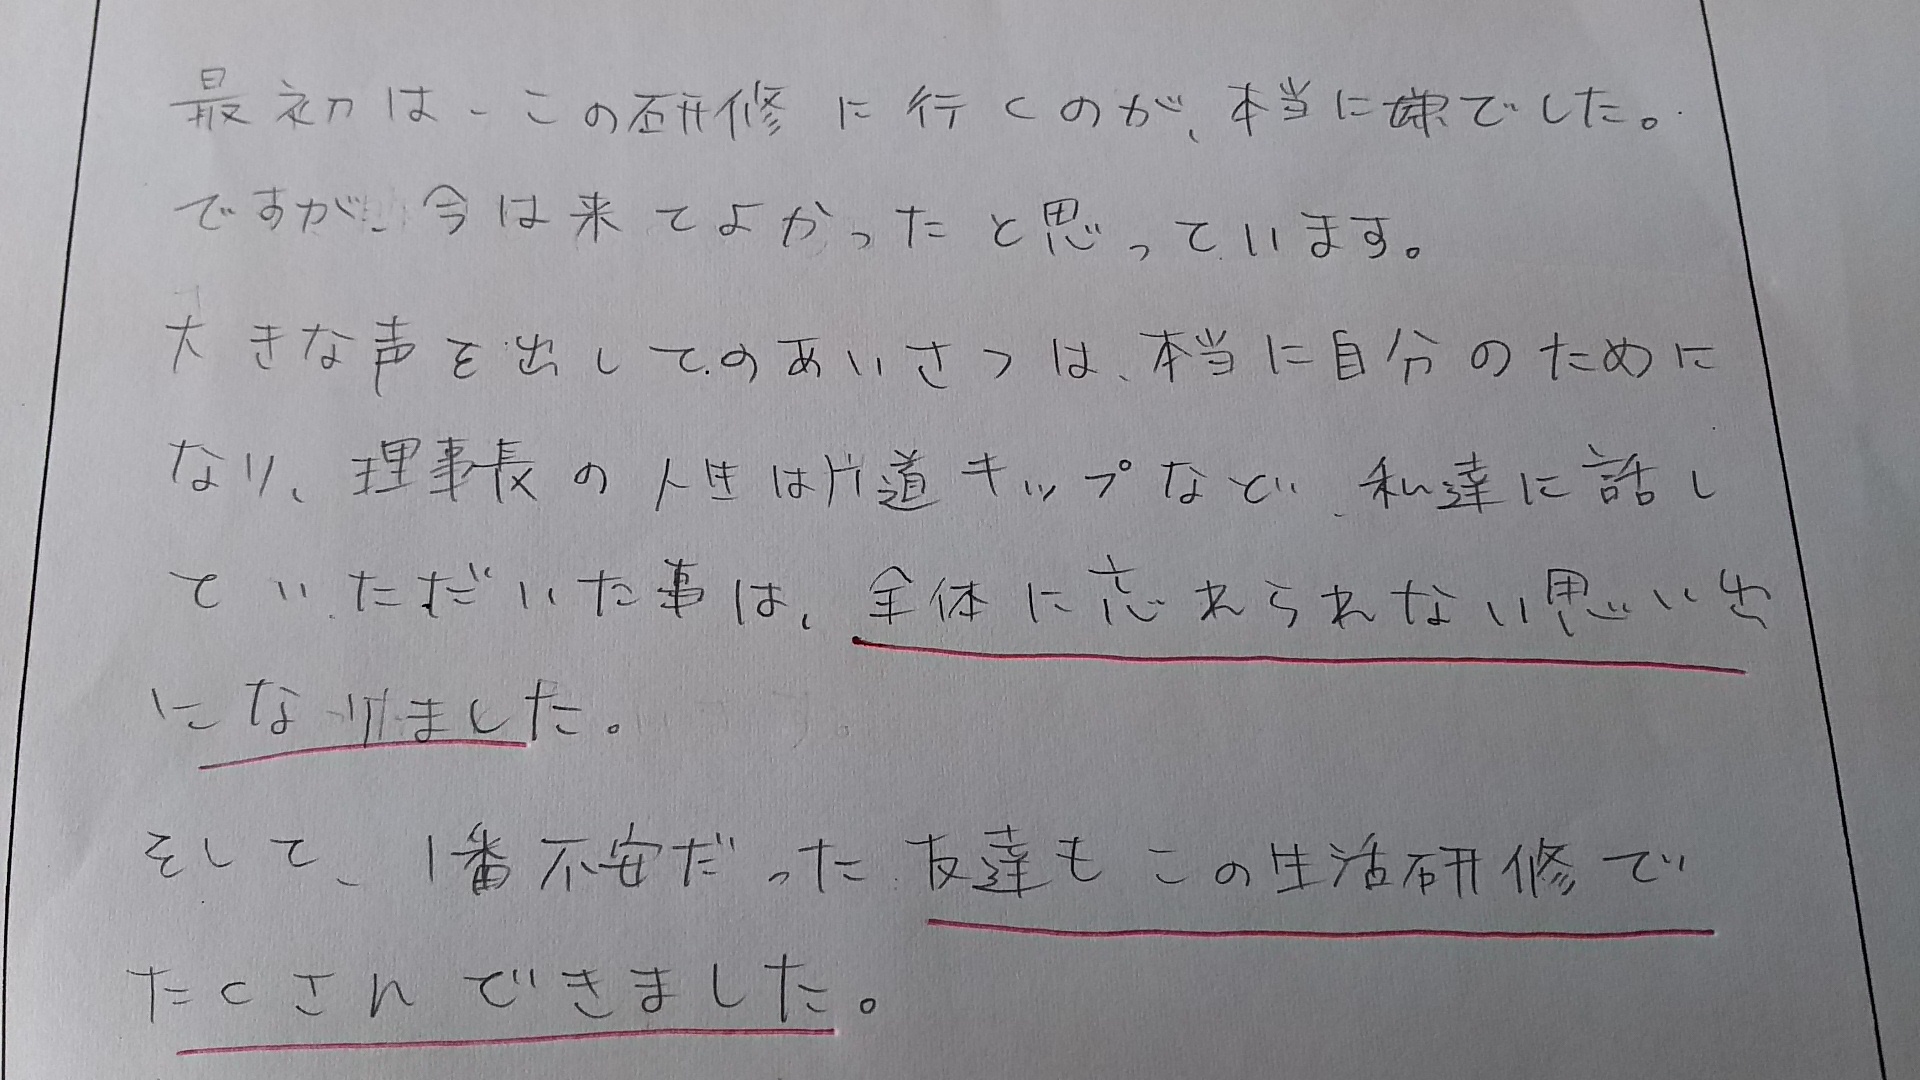 最初は、この研修に行くのが、本当に嫌でした。
ですが、今は来てよかったと思っています。
大きな声を出してのあいさつは、本当に自分のために
なり、理事長の人生は片道キップなど、私達に話し
ていただいた事は、全体に忘れられない思い出
になりました。
そして、1番不安だった友達もこの生活研修で
たくさんできました。